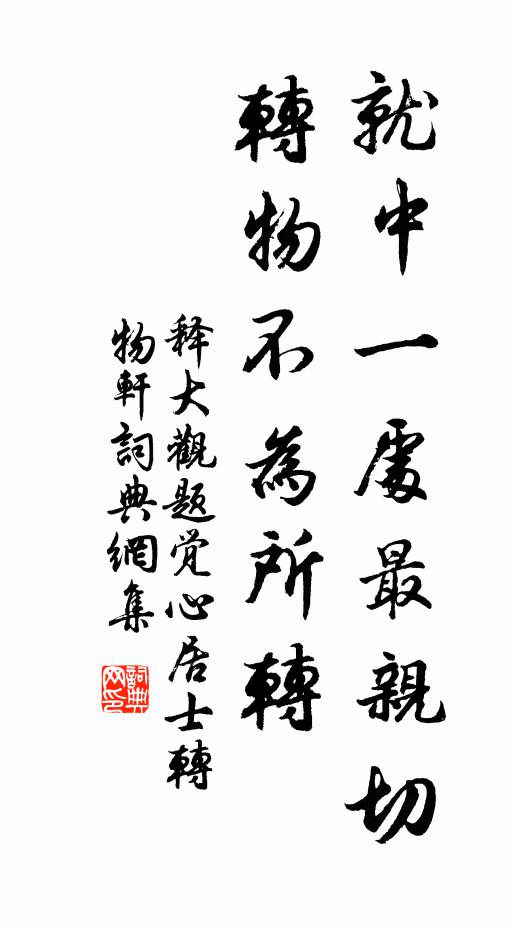 就中一處最親切
轉物不為所轉
释大觀题觉心居士轉
物軒詞典網集
詞典
网印